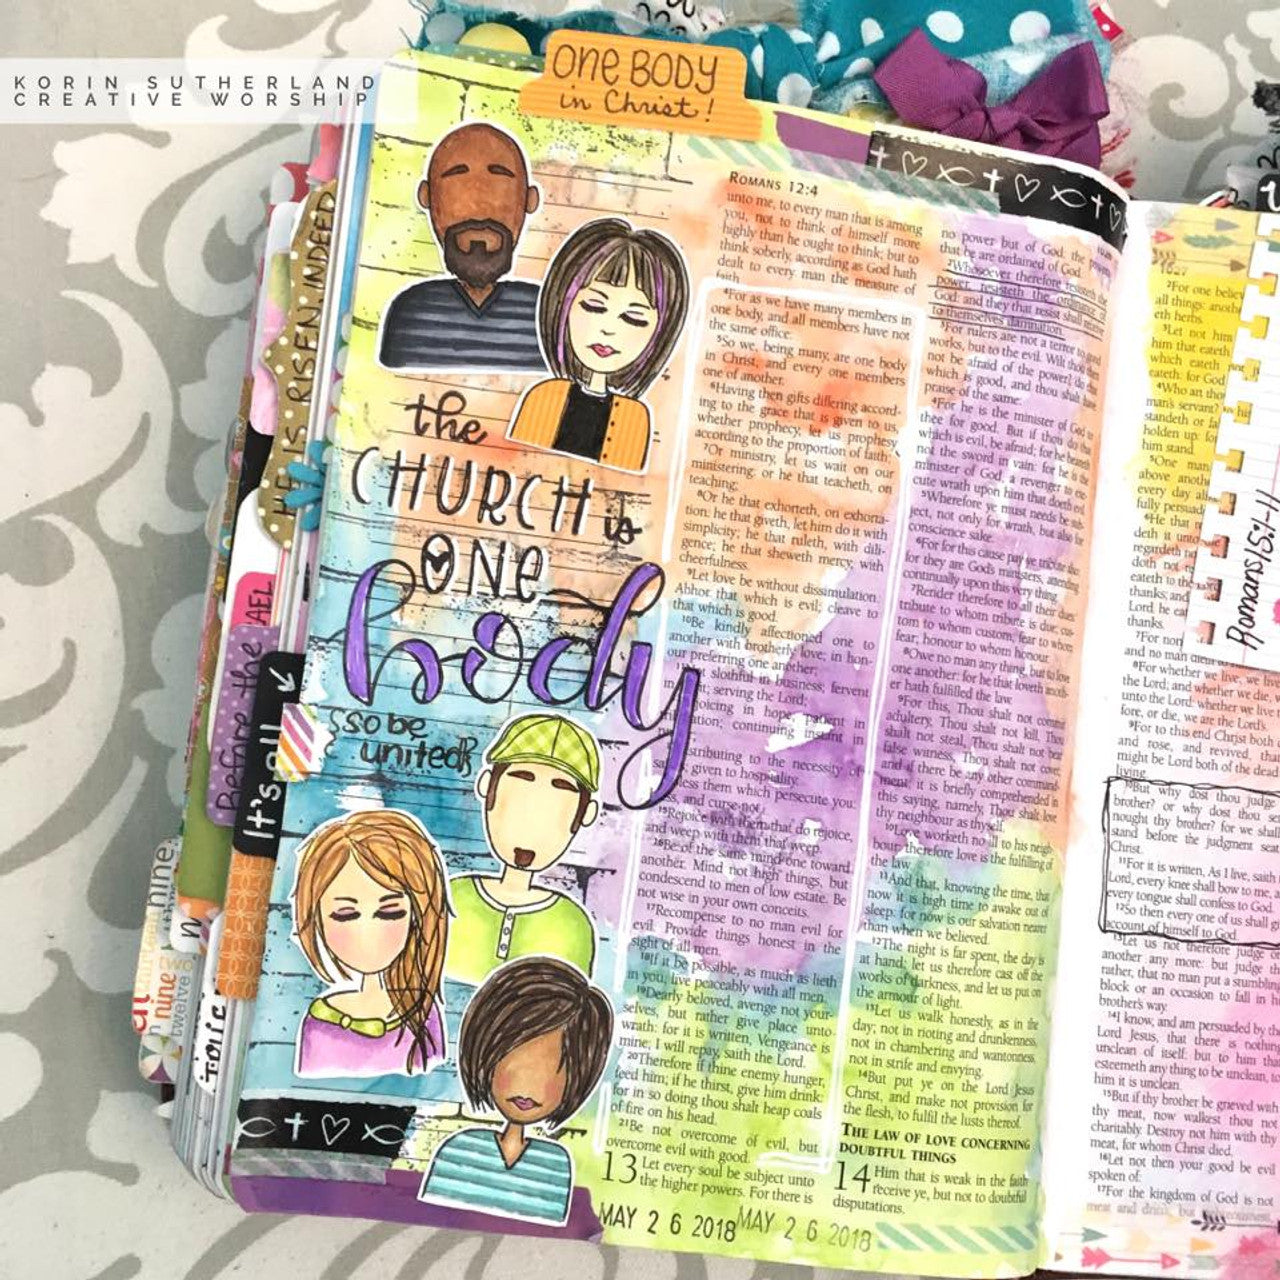 KORIN SUTHERLAND
CREATIVE WORSHIP
ONE BODY
in Christ!
HE IS RISEN, INDEED
the
CHURCH is
ONE
body
so be
united
Before the
It's all
ROMANS 12:4
unto me, to every man that is among
you, not to think of himself more
highly than he ought to think; but to
think soberly, according as God hath
dealt to every man the measure of
faith.
4For as we have many members in
one body, and all members have not
the same office:
5So we, being many, are one body
in Christ, and every one members
one of another.
6Having then gifts differing accord-
ing to the grace that is given to us,
whether prophecy, let us prophesy
according to the proportion of faith;
7Or ministry, let us wait on our
ministering: or he that teacheth, on
teaching;
8Or he that exhorteth, on exhorta-
tion: he that giveth, let him do it with
simplicity; he that ruleth, with dili-
gence; he that sheweth mercy, with
cheerfulness.
9Let love be without dissimulation.
Abhor that which is evil; cleave to
that which is good.
10Be kindly affectioned one to
another with brotherly love; in hon-
our preferring one another;
slothful in business; fervent
serving the Lord;
joicing in hope; patient in
ation; continuing instant in
stributing to the necessity of
given to hospitality.
less them which persecute you:
and curse not.
15Rejoice with them that do rejoice,
and weep with them that weep.
16Be of the same mind one toward
another. Mind not high things, but
condescend to men of low estate. Be
not wise in your own conceits.
17Recompense to no man evil for
evil. Provide things honest in the
sight of all men.
18If it be possible, as much as lieth
in you, live peaceably with all men.
19Dearly beloved, avenge not your-
selves, but rather give place unto
wrath: for it is written, Vengeance is
mine; I will repay, saith the Lord.
20Therefore if thine enemy hunger,
feed him; if he thirst, give him drink:
for in so doing thou shalt heap coals
of fire on his head.
21Be not overcome of evil, but
overcome evil with good.
13 Let every soul be subject unto
the higher powers. For there is
no power but of God: the powers
that be are ordained of God.
2Whosoever therefore resisteth the
power, resisteth the ordinance of
God: and they that resist shall receive
to themselves damnation.
3For rulers are not a terror to good
works, but to the evil. Wilt thou then
not be afraid of the power? do that
which is good, and thou shalt have
praise of the same:
4For he is the minister of God to
thee for good. But if thou do that
which is evil, be afraid; for he beareth
not the sword in vain: for he is the
minister of God, a revenger to exe-
cute wrath upon him that doeth evil.
5Wherefore ye must needs be sub-
ject, not only for wrath, but also for
conscience sake.
6For for this cause pay ye tribute also:
for they are God's ministers, attending
continually upon this very thing.
7Render therefore to all their dues:
tribute to whom tribute is due; cus-
tom to whom custom; fear to whom
fear; honour to whom honour.
8Owe no man any thing, but to love
one another: for he that loveth anoth-
er hath fulfilled the law.
9For this, Thou shalt not commit
adultery, Thou shalt not kill, Thou
shalt not steal, Thou shalt not bear
false witness, Thou shalt not covet;
and if there be any other command-
ment, it is briefly comprehended in
this saying, namely, Thou shalt love
thy neighbour as thyself.
10Love worketh no ill to his neigh-
bour: therefore love is the fulfilling of
the law.
11And that, knowing the time, that
now it is high time to awake out of
sleep: for now is our salvation nearer
than when we believed.
12The night is far spent, the day is
at hand: let us therefore cast off the
works of darkness, and let us put on
the armour of light.
13Let us walk honestly, as in the
day; not in rioting and drunkenness,
not in chambering and wantonness,
not in strife and envying.
14But put ye on the Lord Jesus
Christ, and make not provision for
the flesh, to fulfil the lusts thereof.
THE LAW OF LOVE CONCERNING
DOUBTFUL THINGS
14 Him that is weak in the faith
receive ye, but not to doubtful
disputations.
MAY 2 6 2018 MAY 2 6 2018
2For one believ
all things: anoth
eth herbs.
3Let not him
him that eateth
which eateth not
eateth: for God
4Who art thou
man's servant? to his
standeth or fal
holden up: for
him stand.
5One man
above another
every day alik
fully persuade
6He that r
deth it unto
regardeth no
doth not r
eateth to the Lord
thanks; and
Lord he eat
thanks.
7For non
and no man dieth to
8For whether we live, we live
the Lord; and whether we die, w
unto the Lord: whether we live th
fore, or die, we are the Lord's.
9For to this end Christ both
and rose, and revived, that
might be Lord both of the dead
living.
10But why dost thou judge
brother? or why dost thou set
nought thy brother? for we shall
stand before the judgment seat
Christ.
11For it is written, As I live, saith t
Lord, every knee shall bow to me, a
every tongue shall confess to God.
12So then every one of us shall gi
account of himself to God.
13Let us not therefore judge on
another any more: but judge th
rather, that no man put a stumbling
block or an occasion to fall in hi
brother's way.
14I know, and am persuaded by the
Lord Jesus, that there is nothing
unclean of itself: but to him that
esteemeth any thing to be unclean, to
him it is unclean.
15But if thy brother be grieved with
thy meat, now walkest thou not
charitably. Destroy not him with thy
meat, for whom Christ died.
16Let not then your good be evil
spoken of:
17For the kingdom of God is not
meat and drink; but righteousness,
Romans 15:1-11